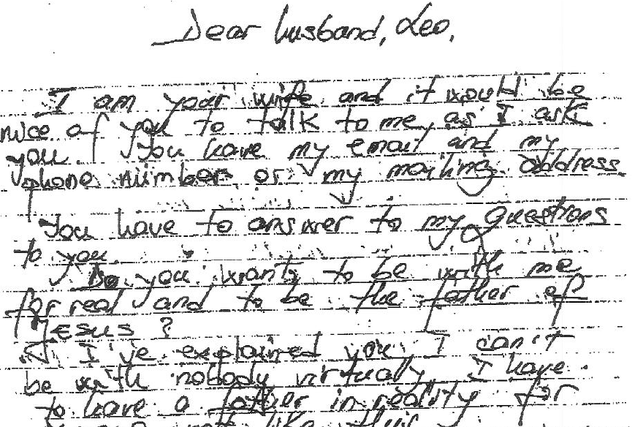 Dear husband, Leo,
I am your wife and it would be
nice of you to talk to me as I ask
you. You have my email and my
phone number or my mailing address.
You have to answer to my questions
to you.
Do you want to be with me
for real and to be the father of
Jesus?
I've explained you I can't
be with nobody virtually I have
to have a father in reality for